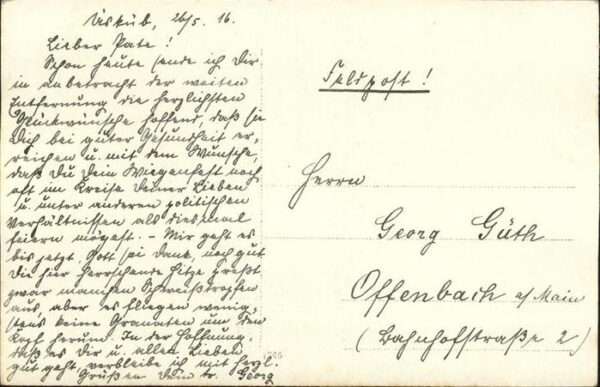 Üsküb, 26/5. 16.
Lieber Pate!
Schon heute sende ich Dir
in anbetracht der weiten
Entfernung die herzlichsten
Glückwünsche hoffend, daß sie
Dich bei guter Gesundheit er-
reichen u. mit dem Wunsche,
daß Du Dein Wiegenfest noch
oft im Kreise Deiner Lieben
u. unter anderen politischen
Verhältnissen als diesmal
feiern mögest. - Mir geht es
bis jetzt, Gott sei dank, noch gut
die hier herrschende Hitze preßt
zwar manchen Schweißtropfen
aus, aber es fliegen wenig-
stens keine Granaten um den
Kopf herum. In der Hoffnung,
daß es Dir u. allen Lieben
gut geht, verbleibe ich mit herzl.
Grüßen Dein tr. Georg
Feldpost!
Herrn
Georg Güth
Offenbach a/Main
(Bahnhofstraße 2)